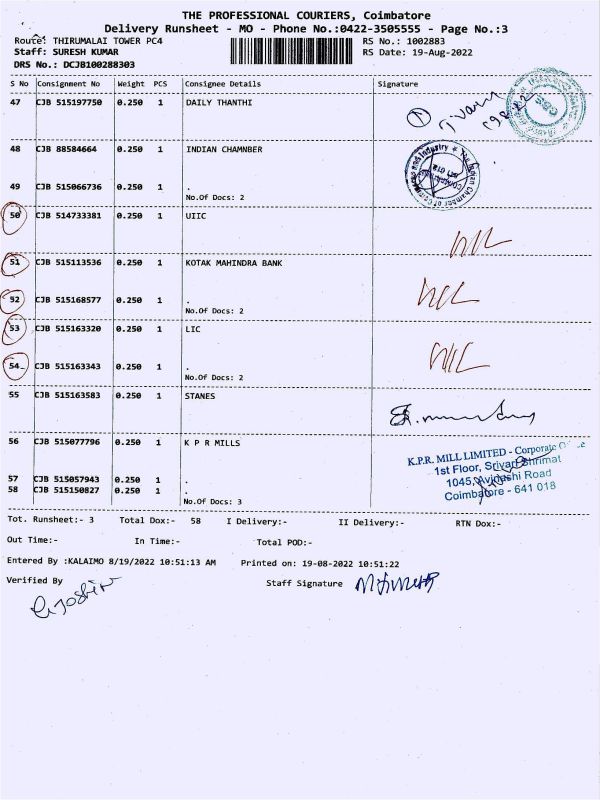 THE PROFESSIONAL COURIERS, Coimbatore
Delivery Runsheet - MO - Phone No.:0422-3505555 - Page No.:3
Route: THIRUMALAI TOWER PC4 RS No.: 1002883
Staff: SURESH KUMAR RS Date: 19-Aug-2022
DRS No.: DCJB100288303
S No Consignment No Weight PCS Consignee Details Signature
47 CJB 515197750 0.250 1 DAILY THANTHI
48 CJB 88584664 0.250 1 INDIAN CHAMNBER
49 CJB 515066736 0.250 1 .
No.Of Docs: 2
50 CJB 514733381 0.250 1 UIIC
51 CJB 515113536 0.250 1 KOTAK MAHINDRA BANK
52 CJB 515168577 0.250 1 .
No.Of Docs: 2
53 CJB 515163320 0.250 1 LIC
54 CJB 515163343 0.250 1 .
No.Of Docs: 2
55 CJB 515163583 0.250 1 STANES
56 CJB 515077796 0.250 1 K P R MILLS
K.P.R. MILL LIMITED - Corporate
1st Floor, Srivari Shrimat
1045, Avinashi Road
Coimbatore - 641 018
57 CJB 515057943 0.250 1 .
58 CJB 515150827 0.250 1 .
No.Of Docs: 3
Tot. Runsheet:- 3 Total Dox:- 58 I Delivery:- II Delivery:- RTN Dox:-
Out Time:- In Time:- Total POD:-
Entered By :KALAIMO 8/19/2022 10:51:13 AM Printed on: 19-08-2022 10:51:22
Verified By Staff Signature